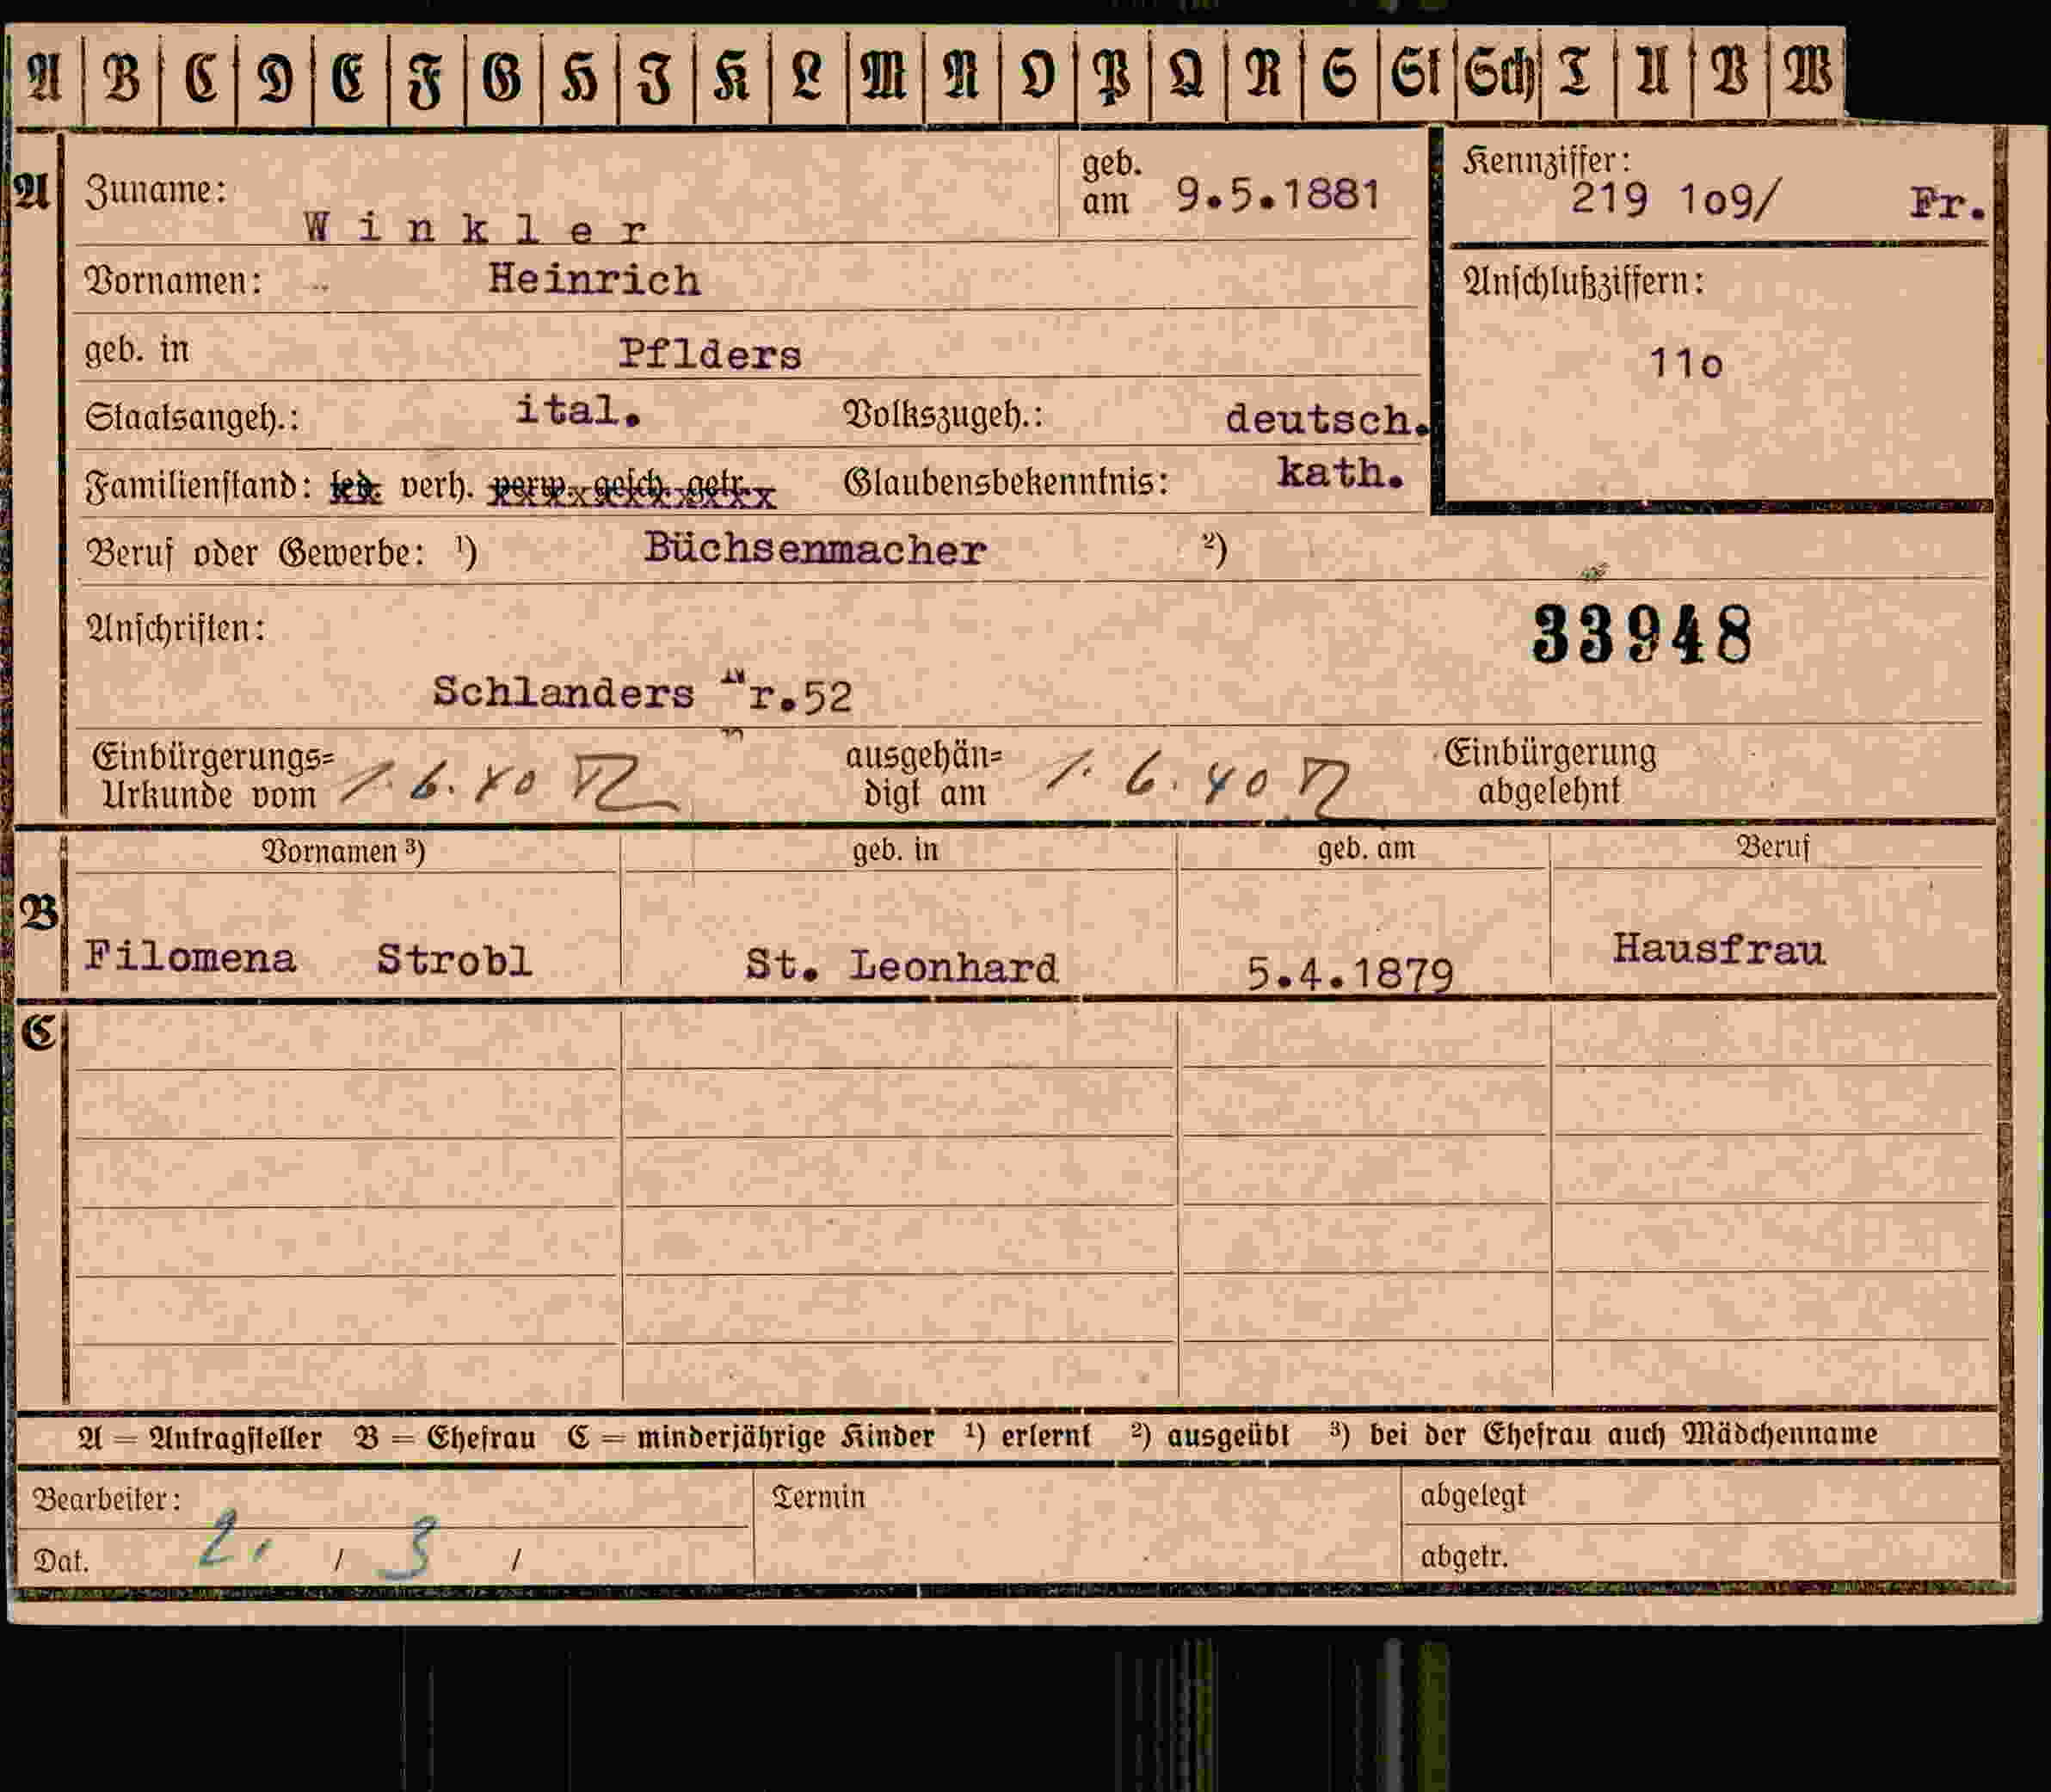 A B C D E F G H I K L M N O P Q R S St Sch T U V W
A Zuname: Winkler geb. am 9.5.1881 Kennziffer: 219 1o9/ Fr.
Vornamen: Heinrich Anschlußziffern:
geb. in Pflders 11o
Staatsangeh.: ital. Volkszugeh.: deutsch.
Familienstand: led. verh. verw. gesch. getr. Glaubensbekenntnis: kath.
Beruf oder Gewerbe: ¹) Büchsenmacher ²)
Anschriften: 33948
Schlanders Nr.52
Einbürgerungs= ausgehän= Einbürgerung
Urkunde vom 1.6.40 digt am 1.6.40 abgelehnt
Vornamen ³) geb. in geb. am Beruf
B Filomena Strobl St. Leonhard 5.4.1879 Hausfrau
C
A = Antragsteller B = Ehefrau C = minderjährige Kinder ¹) erlernt ²) ausgeübt ³) bei der Ehefrau auch Mädchenname
Bearbeiter: Termin abgelegt
Dat. 2. / 3 / abgetr.